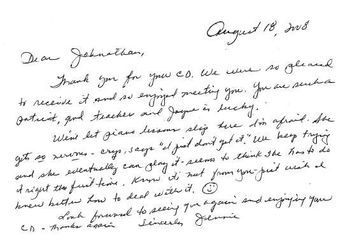 August 18, 2008
Dear Johnathan,
Thank you for your CD. We were so pleased
to receive it and so enjoyed meeting you. You are such a
patriot, and teacher and Jayne is lucky.
Won't let piano lessons slip here I'm afraid. She
gets so nervous - crys, says "I just don't get it." We keep trying
and she eventually can play it - seems to think she has to do
it right the first time. Know it's not from you - just wish I
knew better how to deal with it. ☺
Look forward to seeing you again and enjoying your
CD - thanks again Sincerely, Jeannie